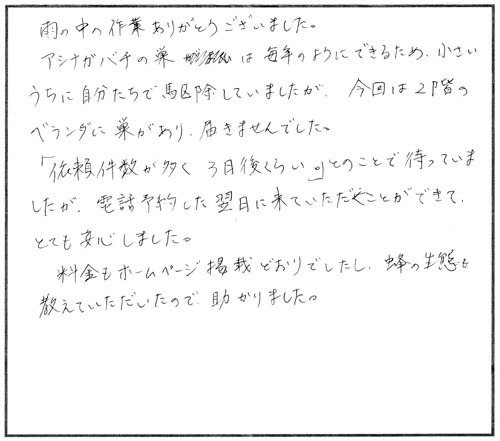 雨の中の作業ありがとうございました。
アシナガバチの巣は毎年のようにできるため、小さい
うちに自分たちで駆除していましたが、今回は2階の
ベランダに巣があり、届きませんでした。
「依頼件数が多く 3日後くらい。」とのことで待っていま
したが、電話予約した翌日に来ていただくことができて、
とても安心しました。
料金もホームページ掲載どおりでしたし、蜂の生態も
教えていただいたので、助かりました。